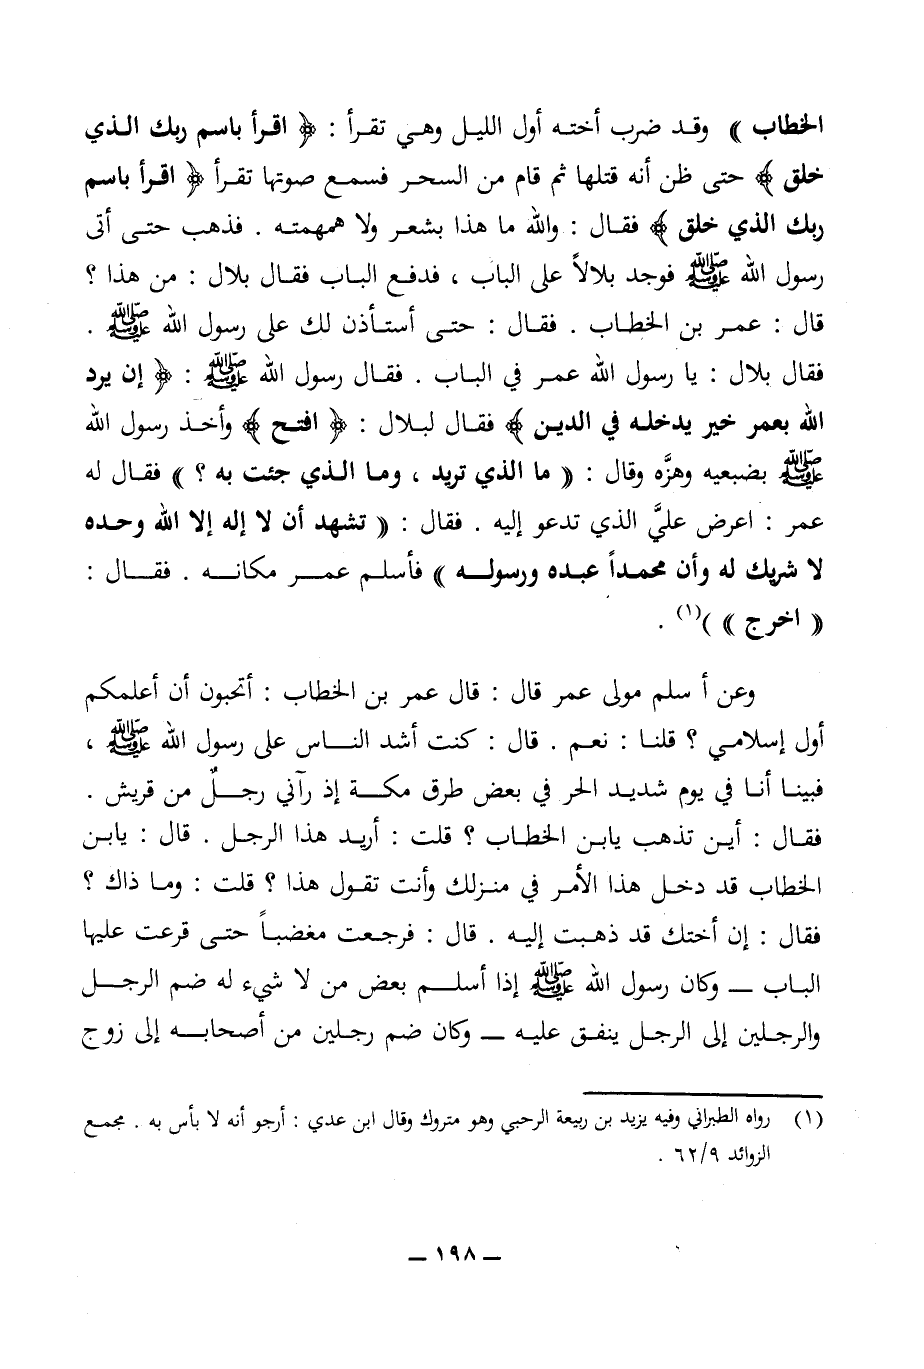 الخطاب » وقد ضرب أخته أول الليل وهي تقرأ : ﴿ اقرأ باسم ربك الذي
خلق ﴾ حتى ظن أنه قتلها ثم قام من السحر فسمع صوتها تقرأ ﴿ اقرأ باسم
ربك الذي خلق ﴾ فقال : والله ما هذا بشعر ولا همهمته . فذهب حتى أتى
رسول الله ﷺ فوجد بلالاً على الباب ، فدفع الباب فقال بلال : من هذا ؟
قال : عمر بن الخطاب . فقال : حتى أستأذن لك على رسول الله ﷺ .
فقال بلال : يا رسول الله عمر في الباب . فقال رسول الله ﷺ : ﴿ إن يرد
الله بعمر خير يدخله في الدين ﴾ فقال لبلال : ﴿ افتح ﴾ وأخذ رسول الله
ﷺ بضبعيه وهزَّه وقال : « ما الذي تريد ، وما الذي جئت به ؟ » فقال له
عمر : اعرض عليَّ الذي تدعو إليه . فقال : « تشهد أن لا إله إلا الله وحده
لا شريك له وأن محمداً عبده ورسوله » فأسلم عمر مكانه . فقال :
« اخرج » )(١) .
وعن أ سلم مولى عمر قال : قال عمر بن الخطاب : أتحبون أن أعلمكم
أول إسلامي ؟ قلنا : نعم . قال : كنت أشد الناس على رسول الله ﷺ ،
فبينا أنا في يوم شديد الحر في بعض طرق مكة إذ رآني رجلٌ من قريش .
فقال : أين تذهب يابن الخطاب ؟ قلت : أريد هذا الرجل . قال : يابن
الخطاب قد دخل هذا الأمر في منزلك وأنت تقول هذا ؟ قلت : وما ذاك ؟
فقال : إن أختك قد ذهبت إليه . قال : فرجعت مغضباً حتى قرعت عليها
الباب ــ وكان رسول الله ﷺ إذا أسلم بعض من لا شيء له ضم الرجل
والرجلين إلى الرجل ينفق عليه ــ وكان ضم رجلين من أصحابه إلى زوج
(١) رواه الطبراني وفيه يزيد بن ربيعة الرحبي وهو متروك وقال ابن عدي : أرجو أنه لا بأس به . مجمع
الزوائد ٦٢/٩ .
ــ ١٩٨ ــ